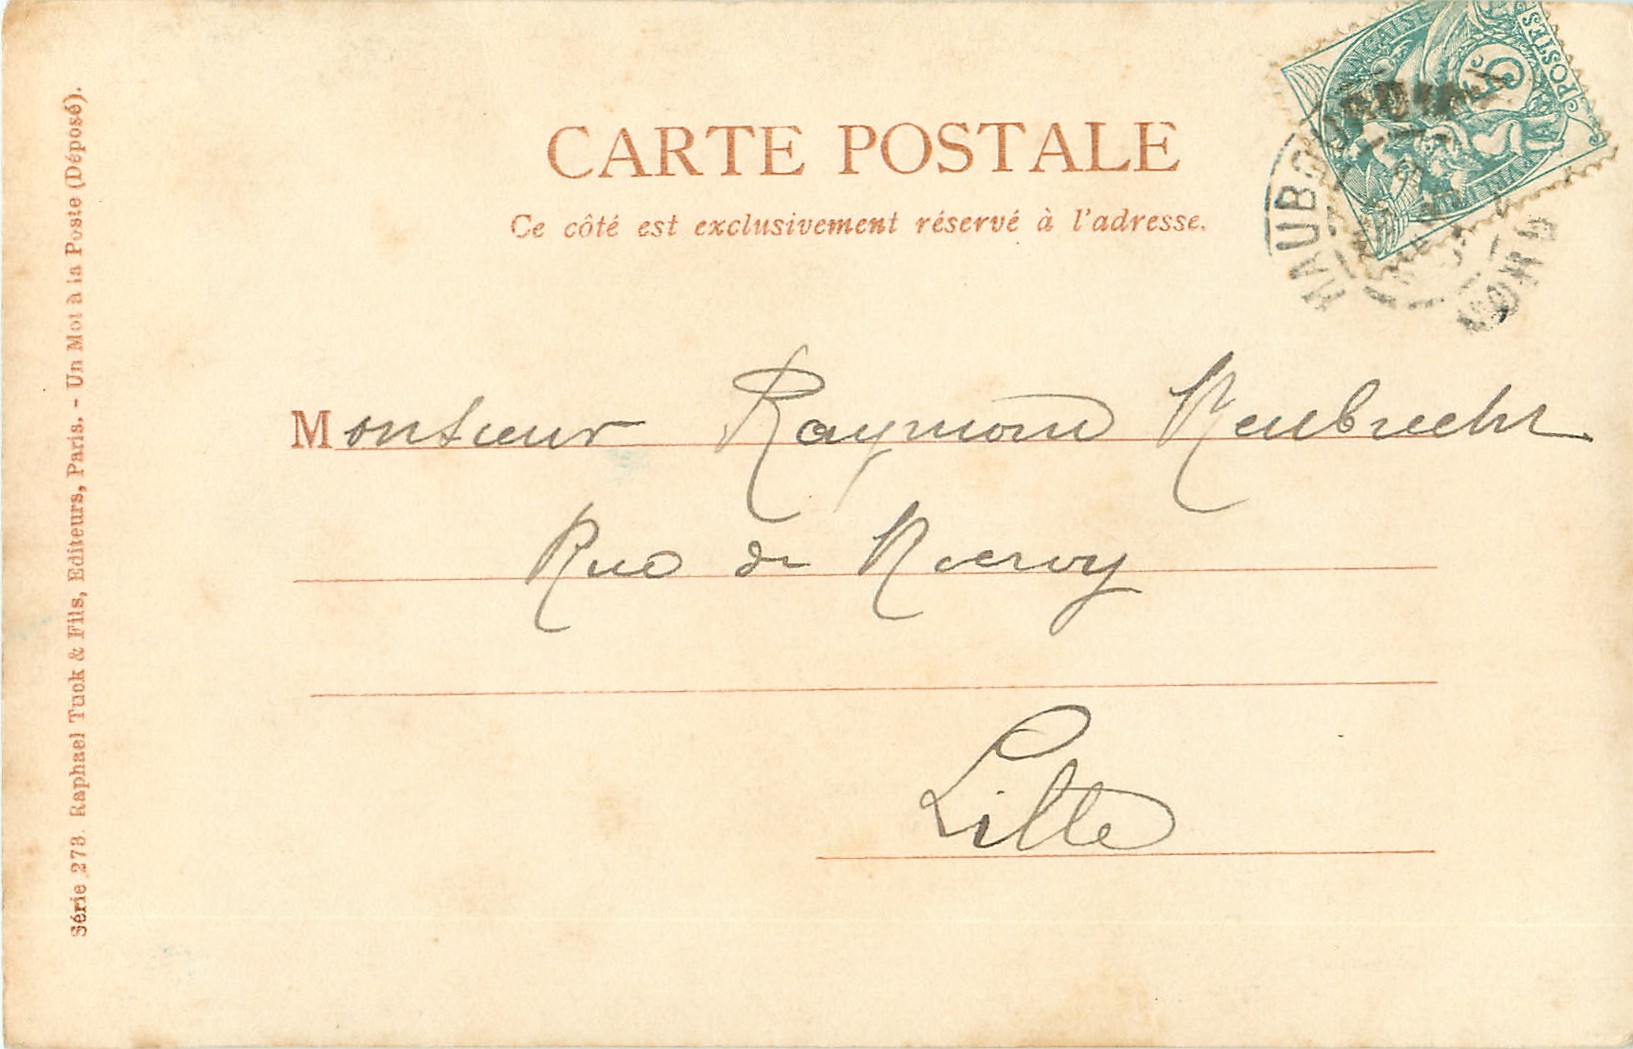 CARTE POSTALE
Ce côté est exclusivement réservé à l'adresse.
Monsieur Raymond
Rue de
Lille
Série 273. Raphael Tuck & Fils, Editeurs, Paris. - Un Mot à la Poste (Déposé).
POSTES
5
MAUBOURDIN